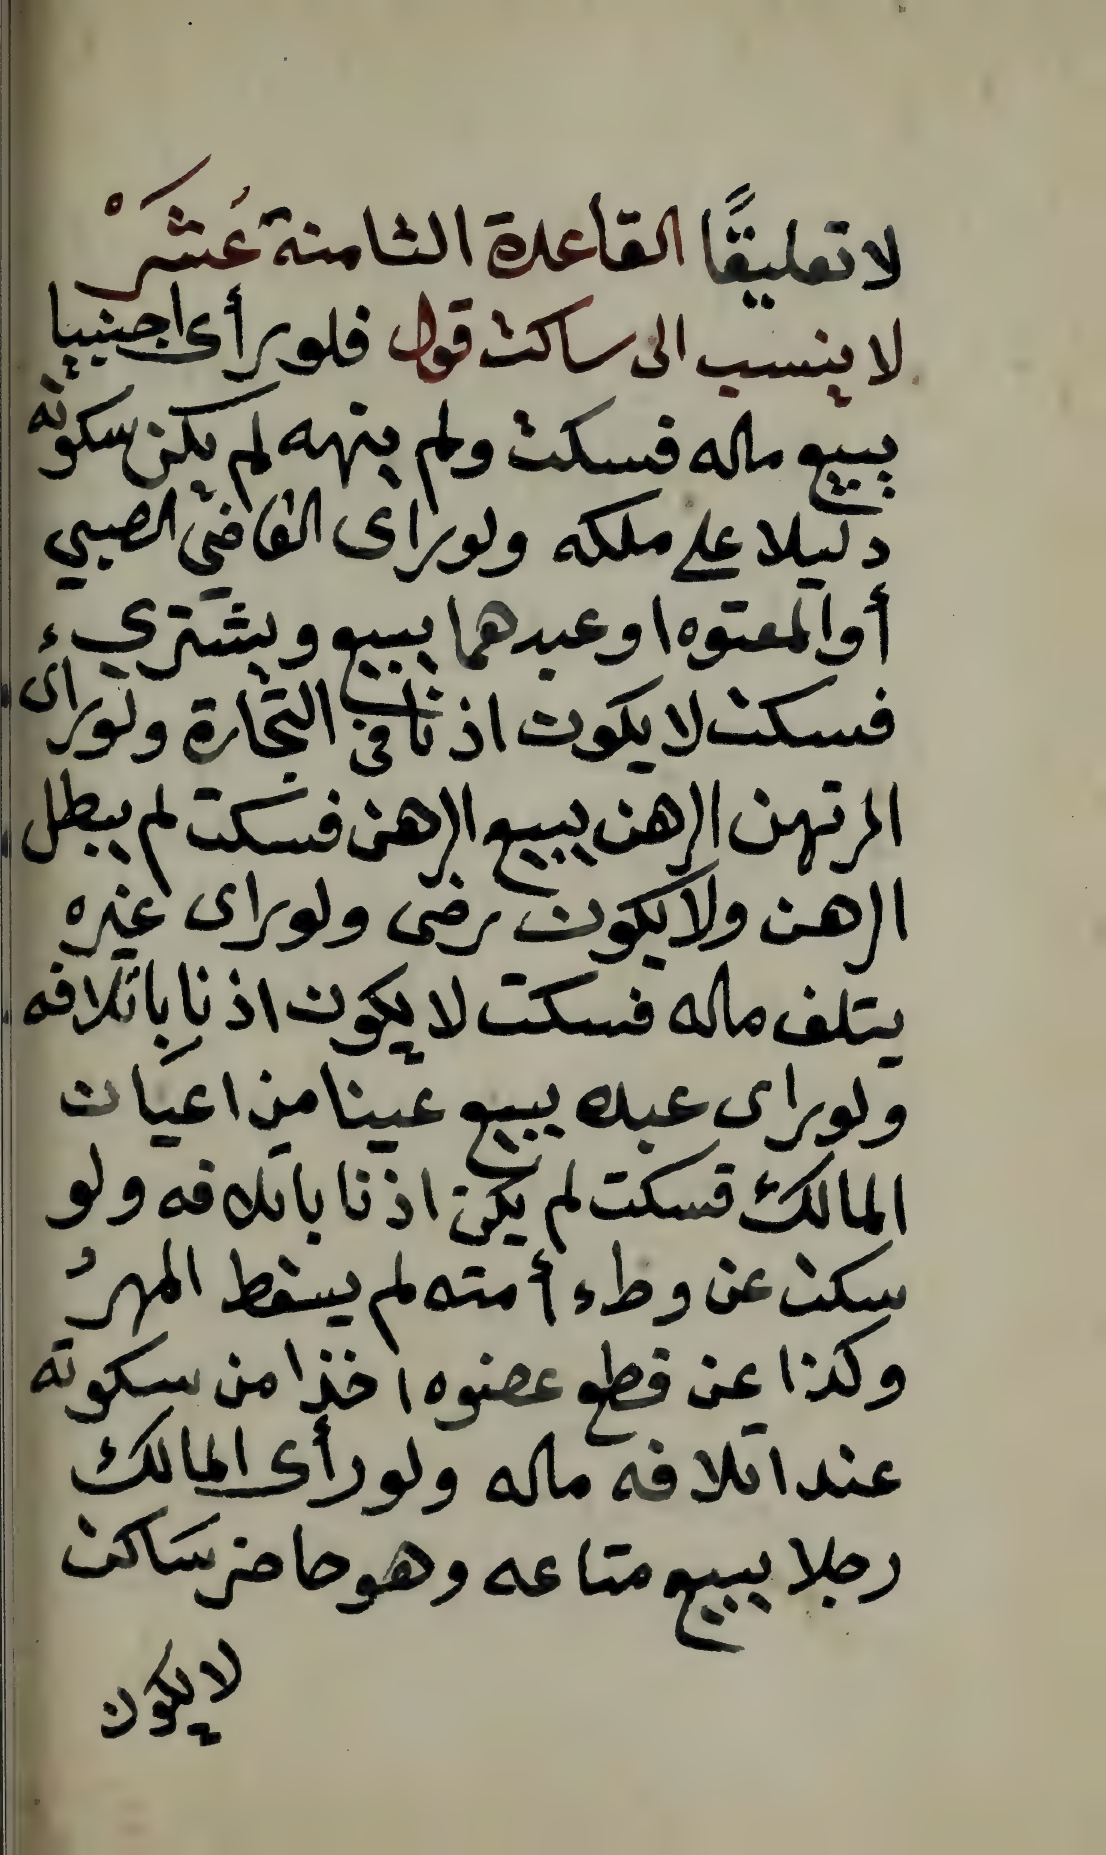 لا تعليقًا القاعدة الثامنة عُشَرْ
لا ينسب الى ساكت قول فلو رأى اجنبيا
يبيع ماله فسكت ولم ينهه لم يكن سكوته
دليلا على ملكه ولو راى القاضي الصبي
أو المعتوه او عبدهما يبيع ويشتري
فسكت لا يكون اذنا في التجارة ولو راى
المرتهن الرهن يبيع الرهن فسكت لم يبطل
الرهن ولا يكون رضى ولو راى غيره
يتلف ماله فسكت لا يكون اذنا باتلافه
ولو راى عبده يبيع عينا من اعيان
المالك فسكت لم يكن اذنا باتلافه ولو
سكت عن وطء أمته لم يسقط المهرُ
وكذا عن قطع عضوه اخذا من سكوته
عند اتلافه ماله ولو رأى المالك
رجلا يبيع متاعه وهو حاضر ساكت
لا يكون